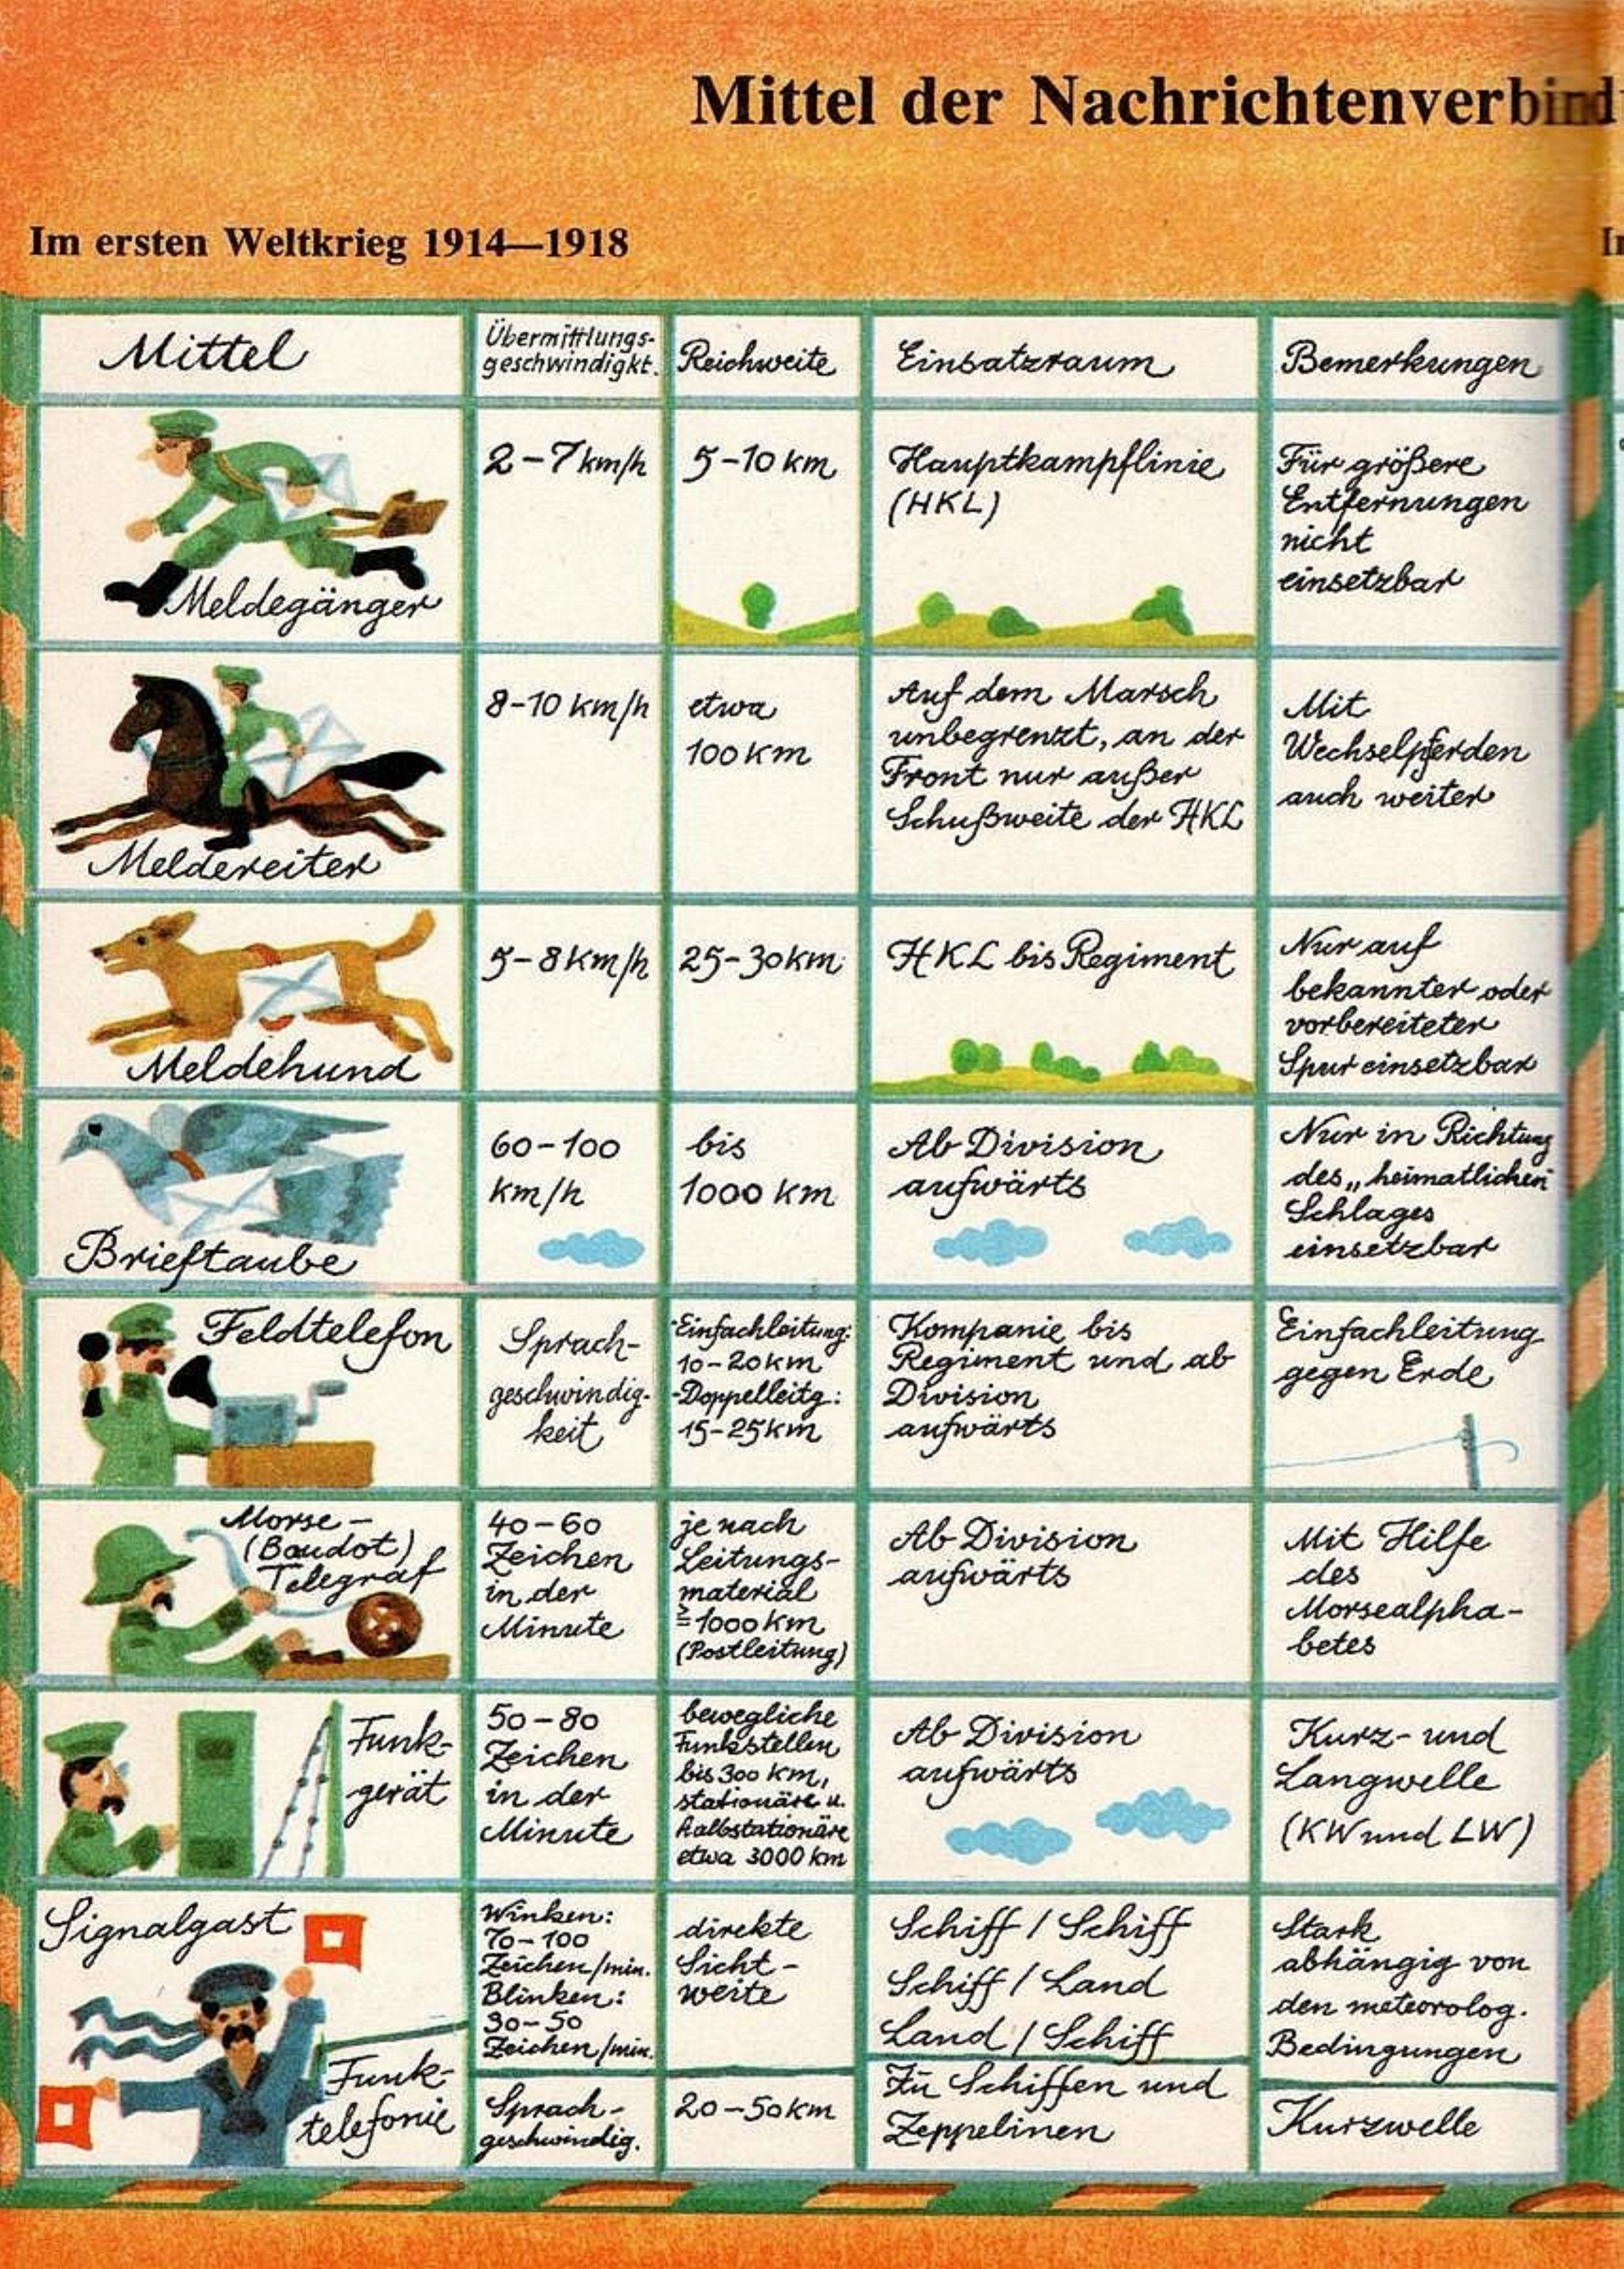 Mittel der Nachrichtenverbind
Im ersten Weltkrieg 1914—1918
Mittel
Übermittlungs-
geschwindigkt.
Reichweite
Einsatzraum
Bemerkungen
Meldegänger
2–7 km/h
5–10 km
Hauptkampflinie
(HKL)
Für größere
Entfernungen
nicht
einsetzbar
Meldereiter
8–10 km/h
etwa
100 km
Auf dem Marsch
unbegrenzt, an der
Front nur außer
Schußweite der HKL
Mit
Wechselpferden
auch weiter
Meldehund
5–8 km/h
25–30 km
HKL bis Regiment
Nur auf
bekannter oder
vorbereiteter
Spur einsetzbar
Brieftaube
60–100
km/h
bis
1000 km
Ab Division
aufwärts
Nur in Richtung
des „heimatlichen
Schlages
einsetzbar
Feldtelefon
Sprach-
geschwindig-
keit
-Einfachleitung:
10–20 km
-Doppelleitg.:
15–25 km
Kompanie bis
Regiment und ab
Division
aufwärts
Einfachleitung
gegen Erde
Morse-
(Baudot)
Telegraf
40–60
Zeichen
in der
Minute
je nach
Leitungs-
material
≥1000 km
(Postleitung)
Ab Division
aufwärts
Mit Hilfe
des
Morsealpha-
betes
Funk-
gerät
50–80
Zeichen
in der
Minute
bewegliche
Funkstellen
bis 300 km,
stationäre u.
halbstationäre
etwa 3000 km
Ab Division
aufwärts
Kurz- und
Langwelle
(KW und LW)
Signalgast
Winken:
70–100
Zeichen/min.
Blinken:
30–50
Zeichen/min.
direkte
Sicht-
weite
Schiff / Schiff
Schiff / Land
Land / Schiff
Stark
abhängig von
den meteorolog.
Bedingungen
Funk-
telefonie
Sprach-
geschwindig.
20–50 km
Zu Schiffen und
Zeppelinen
Kurzwelle